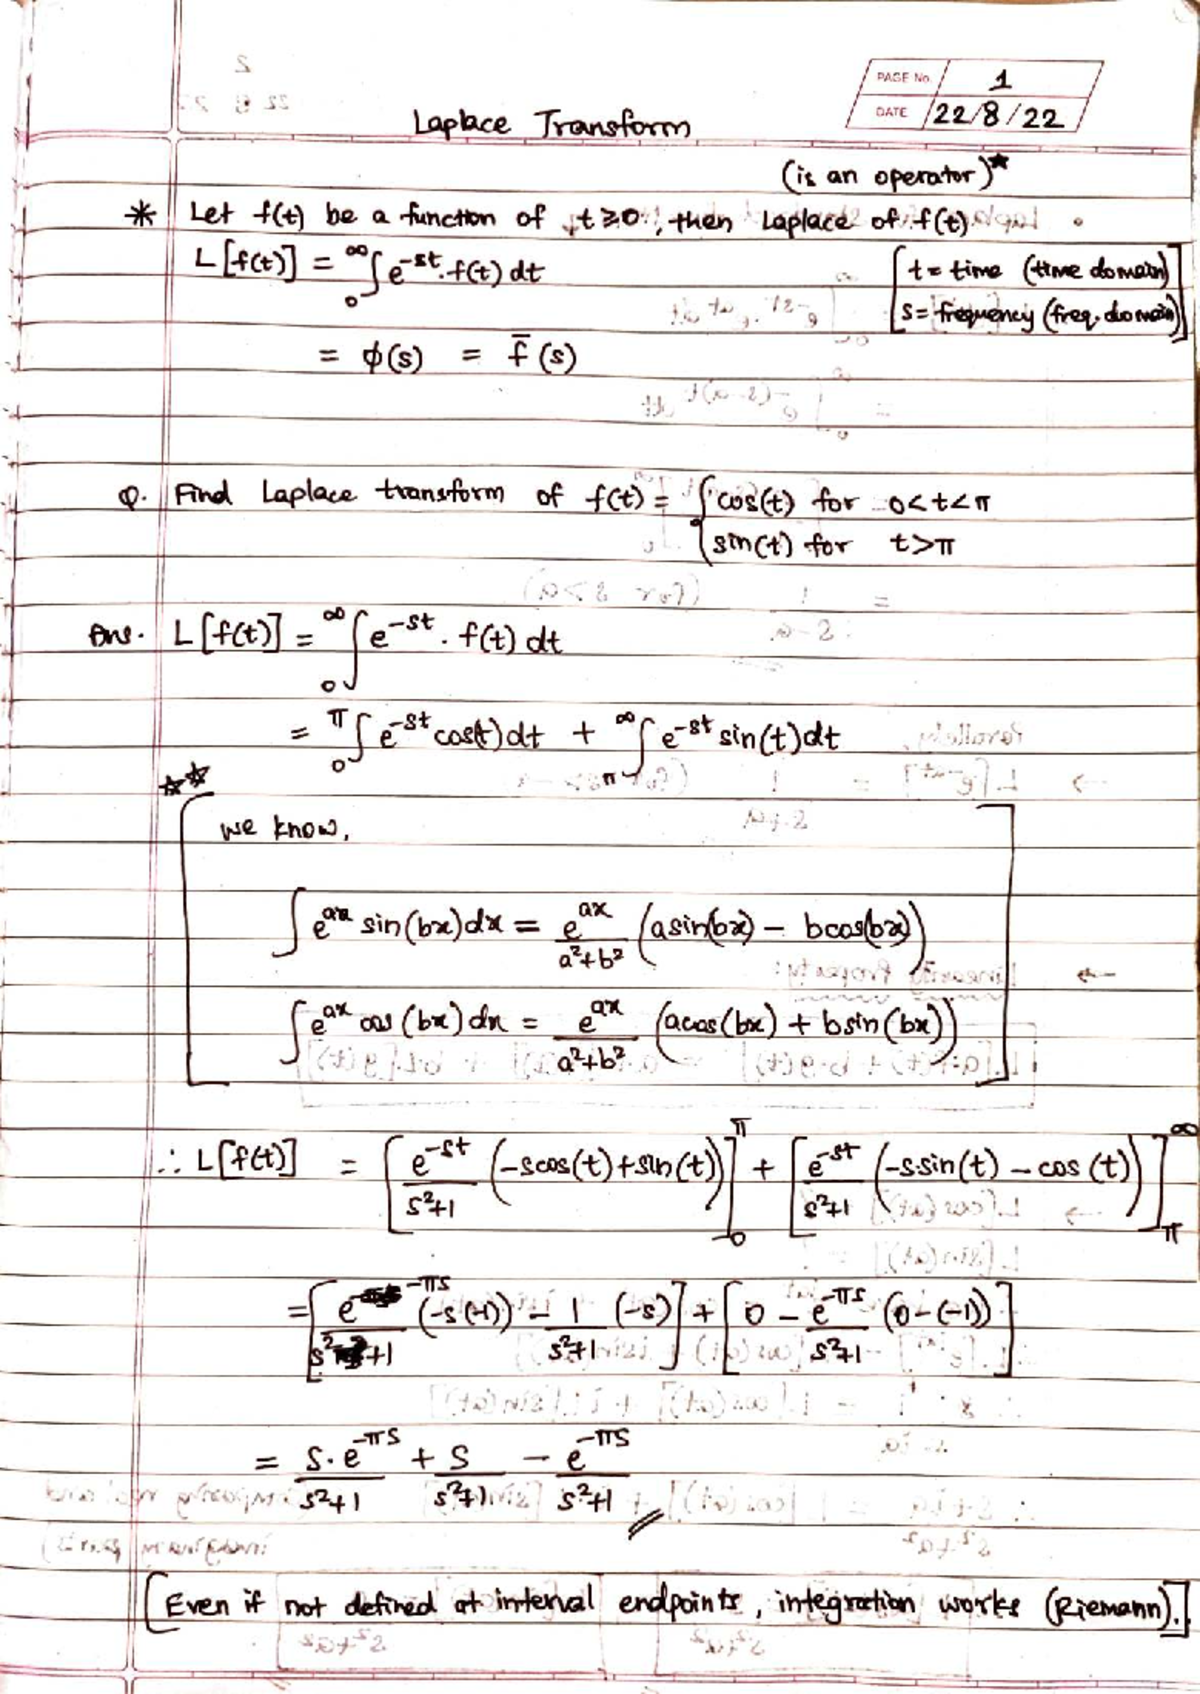 PAGE No. 1
DATE 22/8/22
Laplace Transform
(is an operator)*
* Let f(t) be a function of t≥0, then Laplace of f(t)
L[f(t)] = ∞∫0 e^-st . f(t) dt [t = time (time domain)
s = frequency (freq. domain)]
= φ(s) = f̄(s)
Q. Find Laplace transform of f(t) = { cos(t) for 0<t<π
sin(t) for t>π
Ans. L[f(t)] = ∞∫0 e^-st . f(t) dt
= π∫0 e^-st cos(t) dt + ∞∫π e^-st sin(t) dt
**
[we know,
∫e^ax sin(bx) dx = e^ax/(a²+b²) (a sin(bx) - b cos(bx))
∫e^ax cos(bx) dx = e^ax/(a²+b²) (a cos(bx) + b sin(bx))]
∴ L[f(t)] = [e^-st/(s²+1) (-s cos(t) + sin(t))]_0^π + [e^-st/(s²+1) (-s sin(t) - cos(t))]_π^∞
= [e^-πs/(s²+1) (-s(-1)) - 1/(s²+1) (-s)] + [0 - e^-πs/(s²+1) (0-(-1))]
= s.e^-πs/(s²+1) + s/(s²+1) - e^-πs/(s²+1) //
[Even if not defined at interval endpoints, integration works (Riemann).]